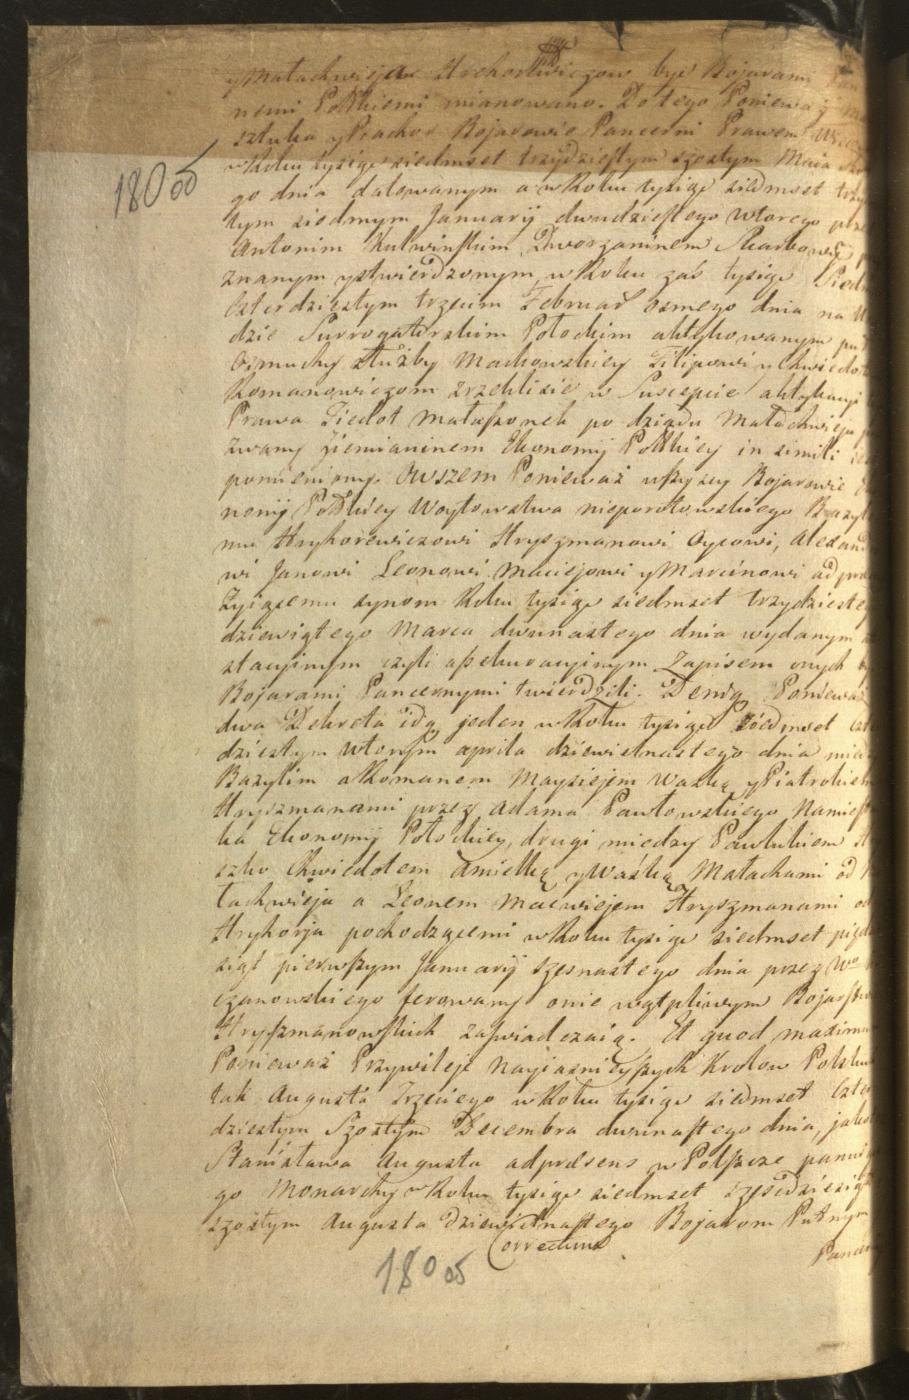 yMatachwieja Hrehorewiczow być Bojarami Pan
nemi Połckiemi mianowano. Do tego Ponieważ
sztuka yPrachor Bojarowie Pancerni Prawem
w Roku tysiąc siedmset trzydziestym szostym Maia
go dnia datowanym a w Roku tysiąc siedmset trzy
tym siedmym Januarij dwudziestego wtorego prze
Antonim Kulwinskim Dworzaninem Skarbowym
znanym ystwierdzonym w Roku zaś tysiąc Siedm
czterdziestym trzecim Februar osmego dnia na U
dzie Surrogatorskim Połockim aktykowanym pu
Osmuchy służby Machowskiey Filipowi u Chwiedo
Romanowiczom zrzekłszie w Suscepcie aktykacyi
Prawa Fiedot Małaszonek po dziadu Matachwieju
zwany Ziemianinem Ekonomij Połckiey in simili
pomieniony. Owszem Ponieważ wszyscy Bojarowie
nomij Połckiey Woytowstwa nieporotowskiego Bazyle
mu Hryhorewiczowi Hryszmanowi Oycowi, Alexand
wi Janowi Leonowi Maciejowi yMarcinowi ad præ
Żyiącemu synom Roku tysiąc siedmset trzydzieste
dziewiątego Marca dwunastego dnia wydanym
stacyinym czyli assekuracyinym Zapisem onych
Bojarami Pancernymi twierdzili. Demq Ponieważ
dwa Dekreta idą jeden w Roku tysiąc siedmset czte
dziestym wtorym aprila dziewietnastego dnia mię
Bazylim aRomanem Maysiejem Waską yPiatrokiem
Hryszmanami przez Adama Pawłowskiego Namies
ka Ekonomij Połockiey, drugi między Pawlukiem
szko Chwiedotem Amielką yWaską Matachami od
tachwieja a Leonem Maciwiejem Hryszmanami od
Hryhorja pochodzącemi w Roku tysiąc siedmset pięd
siąt pierwszym Januarij szesnastego dnia przez Wo
czanowskiego ferowany onie wątpliwym Bojarstw
Hryszmanowskich zaświadczaią. Et quod maximu
Ponieważ Przywileje Nayiasnieyszych Krolow Polsk
tak Augusta Trzeciego w Roku tysiąc siedmset czte
dziestym Szostym Decembra dwunastego dnia, jako
Stanisława Augusta adpræsens w Polszcze panui
go Monarchy w Roku tysiąc siedmset sześćdziesią
szostym Augusta dziewietnastego Bojarom Putnym
Correctum
Pancer
180 05
180 05